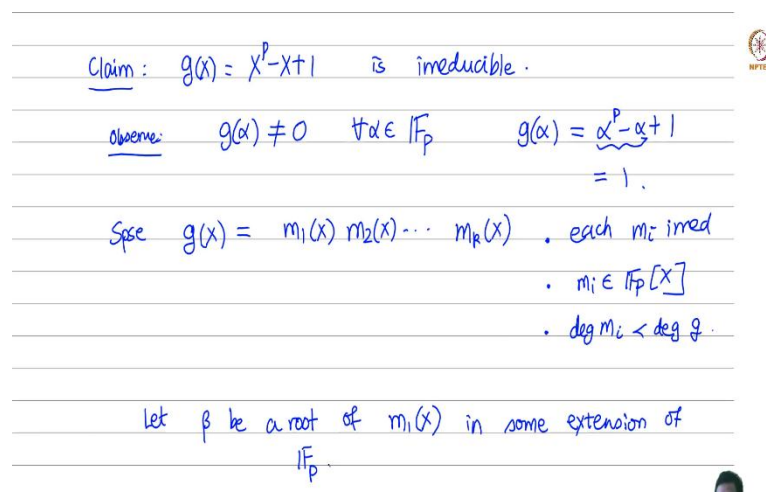 Claim: g(x) = x^p - x + 1 is irreducible.
Observe: g(α) ≠ 0 ∀α ∈ 𝔽_p g(α) = α^p - α + 1
= 1.
Spse g(x) = m_1(x) m_2(x) ... m_k(x) . each m_i irred
. m_i ∈ 𝔽_p[x]
. deg m_i < deg g.
Let β be a root of m_1(x) in some extension of
𝔽_p.
NPTE